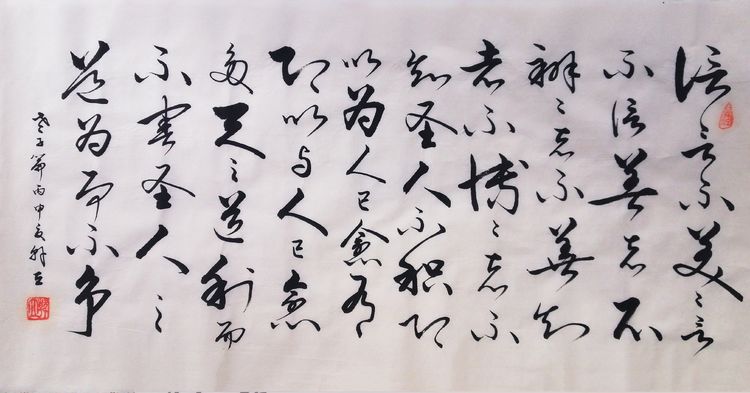 信言不美〻言
不信善者不
辩〻者不善知
者不博〻者不
知圣人不积既
以为人己愈有
既以与人己愈
多天之道利而
不害圣人之
道为而不争
老子篇丙申夏